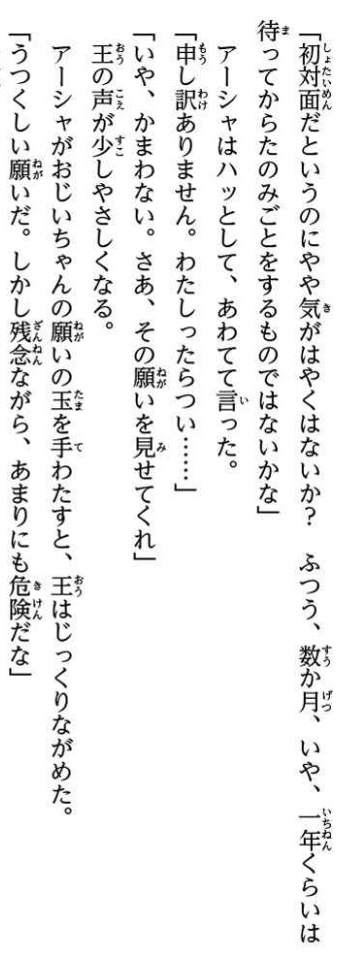 「初対面だというのにやや気がはやくはないか？　ふつう、数か月、いや、一年くらいは
待ってからたのみごとをするものではないかな」
　アーシャはハッとして、あわてて言った。
「申し訳ありません。わたしったらつい……」
「いや、かまわない。さあ、その願いを見せてくれ」
王の声が少しやさしくなる。
　アーシャがおじいちゃんの願いの玉を手わたすと、王はじっくりながめた。
「うつくしい願いだ。しかし残念ながら、あまりにも危険だな」